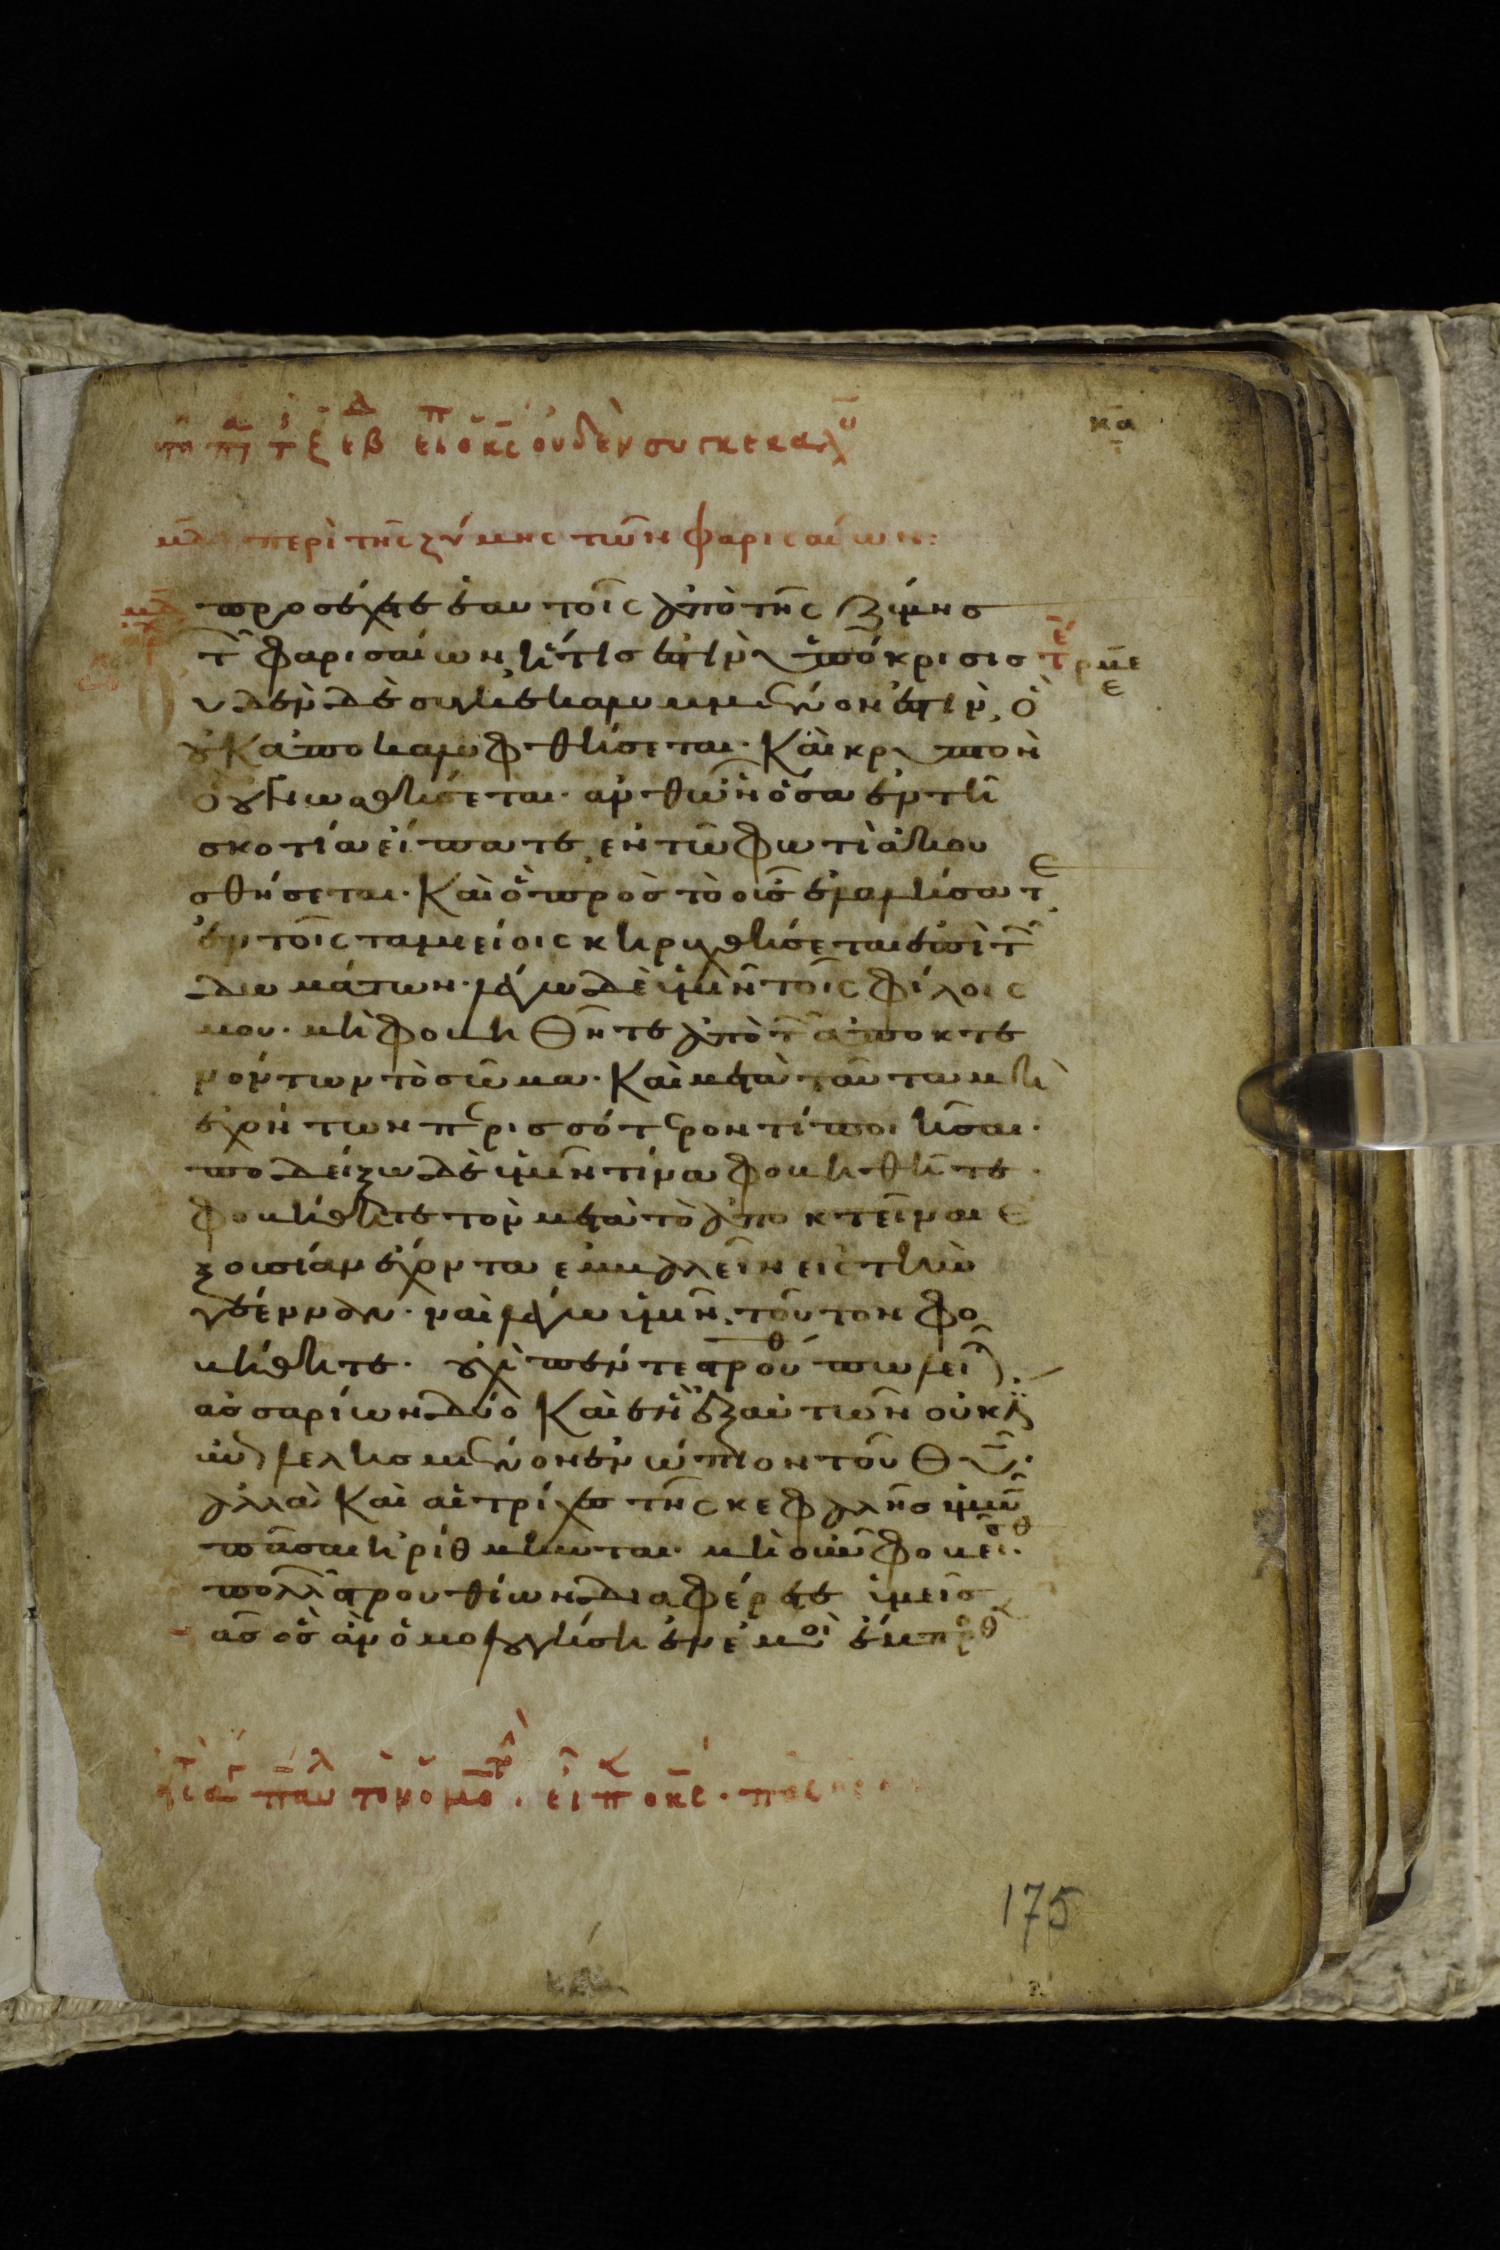 κα
περὶ τῆς ζύμης τῶν φαρισαίων:
προσέχετε ἑαυτοῖς ἀπὸ τῆς ζύμης
τῶ φαρισαίων, ἥτις ἐστὶν ὑπόκρισις
Οὐδὲν δὲ συγκεκαλυμμένον ἐστὶν, ὃ
οὐκ ἀποκαλυφθήσεται. Καὶ κρυπτὸν
ὃ οὐ γνωσθήσεται. ἀνθ ὧν ὅσα ἐν τῆ
σκοτία εἴπατε, ἐν τῶ φωτὶ ἀκου
σθήσεται. Καὶ ὃ πρὸς τὸ οὖς ἐλαλήσατε
ἐν τοῖς ταμείοις κηρυχθήσεται ἐπὶ τῶ
δωμάτων. λέγω δὲ ὑμῖν τοῖς φίλοις
μου. μὴ φοβηθῆτε ἀπὸ τῶ ἀποκτε
νόντων τὸ σῶμα. Καὶ μετὰ ταῦτα μὴ
ἐχόντων περισσότερον τί ποιῆσαι.
ποδείξω δὲ ὑμῖν τίνα φοβηθῆτε.
φοβήθητε τὸν μετὰ τὸ ἀποκτεῖναι ἐ
ξουσίαν ἔχοντα ἐμβαλεῖν εἰς τὴν
γέενναν. ναὶ λέγω ὑμῖν, τοῦτον φο
βήθητε. οὐχὶ πέντε στρουθ πωλεῖται
ἀσσαρίων δύο Καὶ ἓν ἐξ αὐτῶν οὐκ ἔ
λελησμένον ἐνώπιον τοῦ ΘΥ.
ἀλλὰ Καὶ αἱ τρίχες τῆς κεφαλῆς ὑμῶ
πᾶσαι ἠρίθμηνται. μὴ οὖν φοβεῖσθ
πολλῶ στρουθίων διαφέρετε ὑμεῖς
ὃς ἂν ὁμολογήση ἐν ἐμοὶ ἔμπροσθ
175